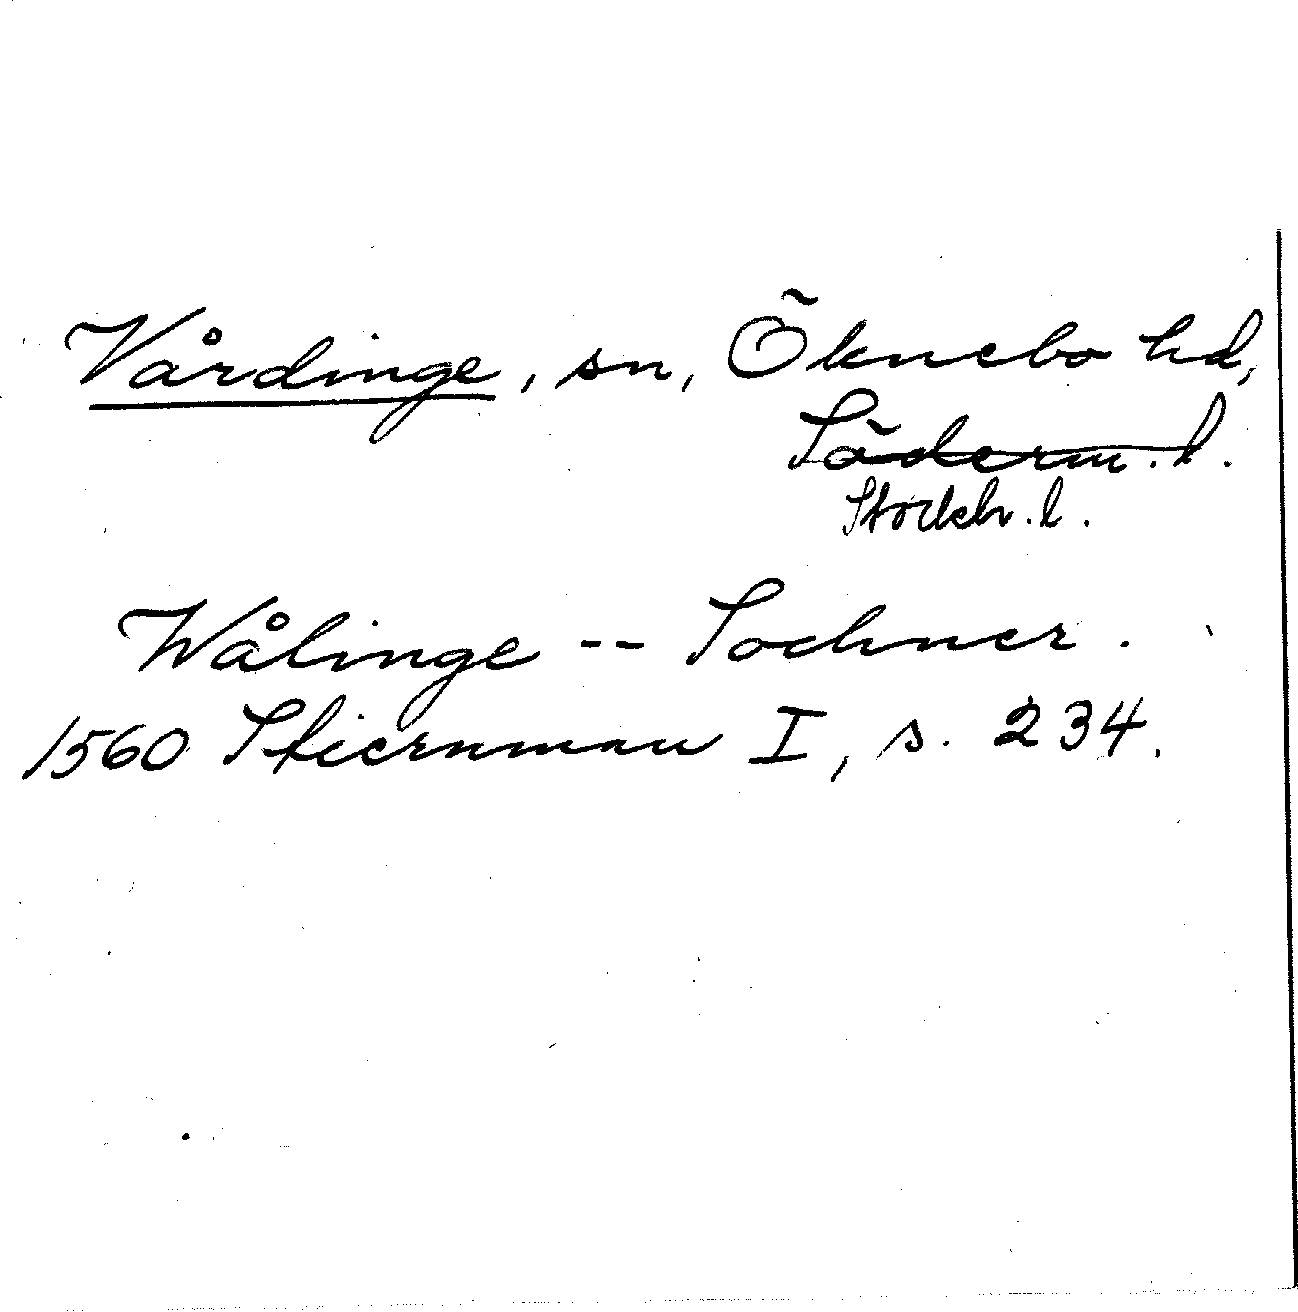 Vårdinge, sn, Öknebo hd,
Söderm. l.
Stockh. l.
Wålinge -- Sochner.
1560 Stiernman I, s. 234.